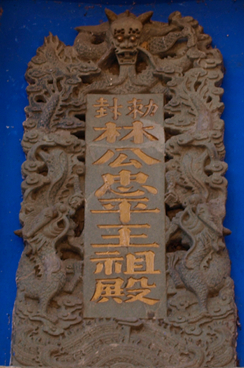 勅封
林公忠平王祖殿